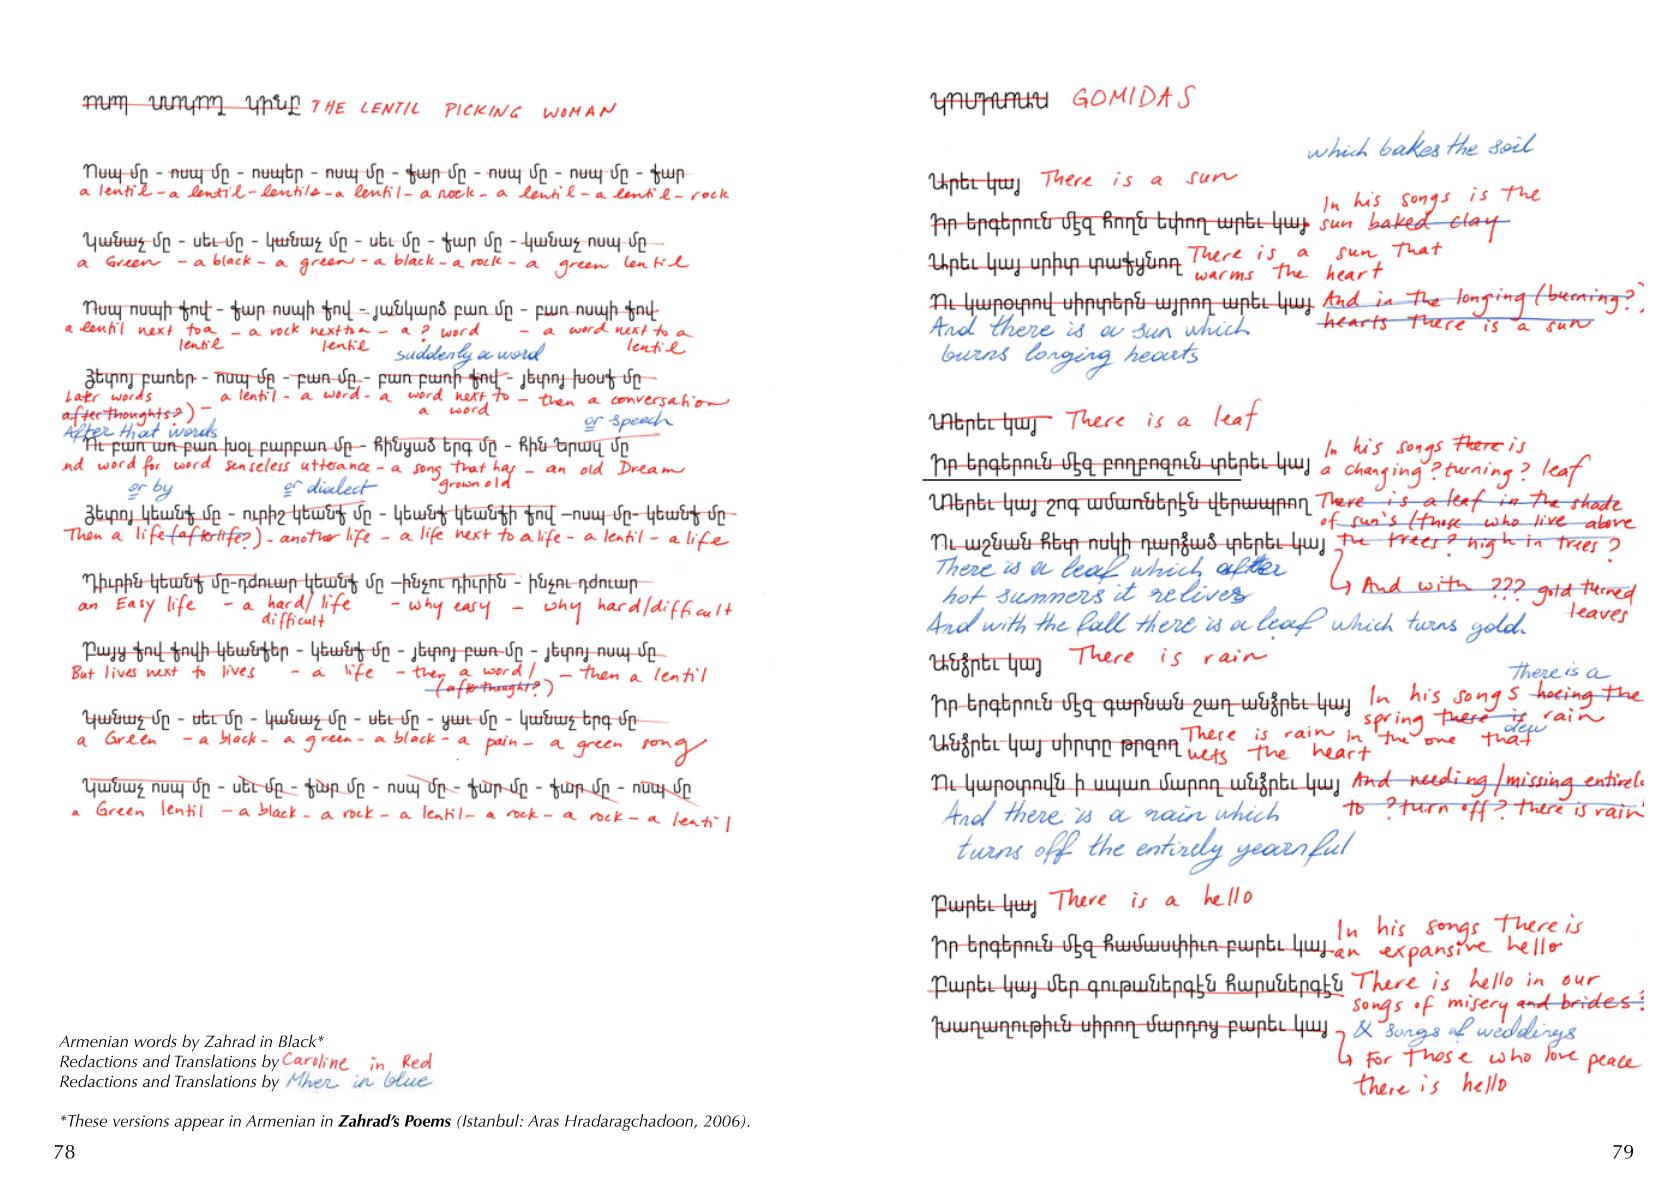 ՈՍՊ ՍՏԿՈՂ ԿԻՆԸ THE LENTIL PICKING WOMAN
Ոսպ մը - ոսպ մը - ոսպեր - ոսպ մը - քար մը - ոսպ մը - ոսպ մը - քար
a lentil - a lentil - lentils - a lentil - a rock - a lentil - a lentil - rock
Կանաչ մը - սեւ մը - կանաչ մը - սեւ մը - քար մը - կանաչ ոսպ մը
a Green - a black - a green - a black - a rock - a green lentil
Ոսպ ոսպի քով - քար ոսպի քով - յանկարծ բառ մը - բառ ոսպի քով
a lentil next to a - a rock next to a - a ? word - a word next to a
lentil lentil lentil
suddenly a word
Յետոյ բառեր - ոսպ մը - բառ մը - բառ բառի քով - յետոյ խօսք մը
Later words a lentil - a word - a word next to - then a conversation
after thoughts?) - a word
After that words or speech
Ու բառ առ բառ խօլ բարբառ մը - հինցած երգ մը - հին երազ մը
nd word for word senseless utterance - a song that has - an old Dream
grown old
or by or dialect
Յետոյ կեանք մը - ուրիշ կեանք մը - կեանք կեանքի քով –ոսպ մը- կեանք մը
Then a life (afterlife?) - another life - a life next to a life - a lentil - a life
Դիւրին կեանք մը-դժուար կեանք մը –ինչու դիւրին - ինչու դժուար
an Easy life - a hard/ life - why easy - why hard/difficult
difficult
Բայց քով քովի կեանքեր - կեանք մը - յետոյ բառ մը - յետոյ ոսպ մը
But lives next to lives - a life - then a word/ - then a lentil
(afterthought?)
Կանաչ մը - սեւ մը - կանաչ մը - սեւ մը - ցաւ մը - կանաչ երգ մը
a Green - a black - a green - a black - a pain - a green song
Կանաչ ոսպ մը - սեւ մը - քար մը - ոսպ մը - քար մը - քար մը - ոսպ մը
a Green lentil - a black - a rock - a lentil - a rock - a rock - a lentil
Armenian words by Zahrad in Black*
Redactions and Translations by Caroline in Red
Redactions and Translations by Mher in blue
*These versions appear in Armenian in Zahrad's Poems (Istanbul: Aras Hradaragchadoon, 2006).
78
ԿՈՄԻՏԱՍ GOMIDAS
which bakes the soil
Արեւ կայ There is a sun
In his songs is the
Իր երգերուն մէջ հողն եփող արեւ կայ sun baked clay
Արեւ կայ սիրտ տաքցնող There is a sun that
warms the heart
Ու կարօտով սիրտերն այրող արեւ կայ And in the longing (burning?)
hearts there is a sun
And there is a sun which
burns longing hearts
Տերեւ կայ There is a leaf
In his songs there is
Իր երգերուն մէջ բողբոջուն տերեւ կայ a changing? turning? leaf
Տերեւ կայ շոգ ամառներէն վերապրող There is a leaf in the shade
of sun's (those who live above
Ու աշնան հետ ոսկի դարձած տերեւ կայ the trees? high in trees?
There is a leaf which after
hot summers it relives And with ??? gold turned
leaves
And with the fall there is a leaf which turns gold
Անձրեւ կայ There is rain
there is a
Իր երգերուն մէջ գարնան շաղ անձրեւ կայ In his songs hoeing the
spring there is rain
dew
Անձրեւ կայ սիրտը թրջող There is rain in the one that
wets the heart
Ու կարօտովն ի սպառ մարող անձրեւ կայ And needing/missing entirely
to ? turn off? there is rain
And there is a rain which
turns off the entirely yearnful
Բարեւ կայ There is a hello
In his songs there is
Իր երգերուն մէջ համասփիւռ բարեւ կայ an expansive hello
Բարեւ կայ մեր գութաներգէն հարսներգէն There is hello in our
songs of misery and brides?
Խաղաղութիւն սիրող մարդոց բարեւ կայ & songs of weddings
For those who love peace
there is hello
79